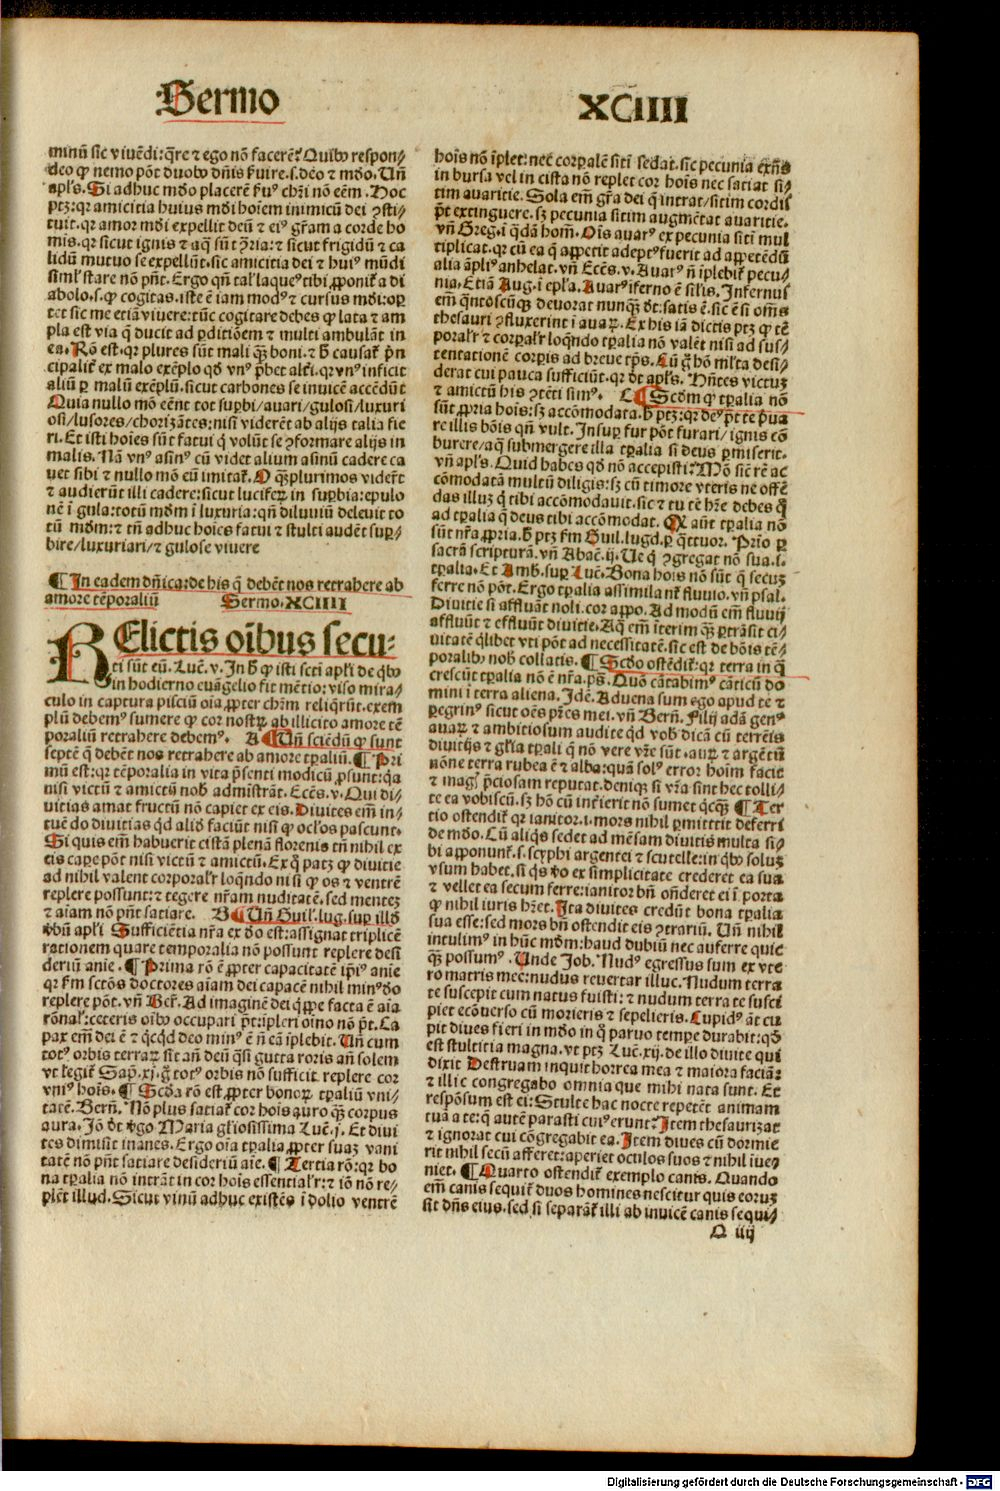 Sermo
XCIIII
minū sic viuēdi: q̄re & ego nō facerē? Quibꝰ respon/
deo ꝙ nemo pōt duobꝰ dn̄is ẜuire.s.deo & mūdo. Un̄
apl̄s. Si adhuc mūdo placerē ẜuꝰ chr̄i nō eēm. Hoc
ptꝫ: qꝛ amicitia huius mūdi hoīem inimicū dei ꝯsti/
tuit. qꝛ amor mūdi expellit deū & eiꝰ gr̄am a corde ho
mis. qꝛ sicut ignis & aq̄ sūt ꝯ̄ria: & sicut frigidū & ca
lidū mutuo se expellūt. sic amicitia dei & huiꝰ mūdi
siml̓ stare nō pn̄t. Ergo qn̄ tal̓ laqueꝰ tibi ꝓponit̄ a di
abolo.s. ꝙ cogitas. iste ē iam modꝰ & cursus mūdi: opꝫ
tet sic me etiā viuere: tūc cogitare debes ꝙ lata & am
pla est via q̄ ducit ad ꝑditiōem & multi ambulāt in
ea. Rō est. qꝛ plures sūt mali q̄ꝫ boni. & h̄ causat̄ p̄n
cipalit̄ ex malo exēplo qd̄ vnꝰ p̄bet alt̄i. qꝛ vnꝰ inficit
aliū ꝑ malū exēplū. sicut carbones se inuicē accēdūt
Quia nullo mō eēnt tot suꝑbi/auari/gulosi/luxuri
osi/lusores/chorizātes: nisi viderēt ab alijs talia fie
ri. Et isti hoīes sūt fatui q̄ volūt se ꝯformare alijs in
malis. Nā vnꝰ asinꝰ cū videt alium asinū cadere ca
uet sibi & nullo mō eū imitat̄. O q̄ꝫplurimos viderūt
& audierūt illi cadere: sicut luciferꝝ in suꝑbia: epulo
nē ī gula: totū mūdm̄ ī luxuria: qn̄ diluuiū deleuit to
tū mūdm̄: & tn̄ adhuc hoīes fatui & stulti audēt suꝑ/
bire/luxuriari/& gulose viuere
¶ In eadem dn̄ica: de his q̄ debēt nos retrahere ab
amore tēporaliū Sermo. XCIIII
RElictis oībus secu/
ti sūt eū. Luc̄. v. In h̄ ꝙ isti scti apl̄i de qbꝰ
in hodierno euāgelio fit mētio: viso mira/
culo in captura pisciū oīa ꝓpter chr̄m reliqrūt. exem
plū debemꝰ sumere ꝙ cor nostꝝ ab illicito amore tē
poraliū retrahere debemꝰ. A ¶ Un̄ sciēdū ꝙ sunt
septē q̄ debēt nos retrahere ab amore tꝑaliū. ¶ Pri
mū est: qꝛ tēporalia in vita p̄senti modicū ꝓsunt: qa
nisi victū & amictū nob̄ admistrāt. Ecc̄s. v. Qui di/
uitias amat fructū nō capiet ex eis. Diuites em̄ in/
tuēdo diuitias qd̄ aliud faciūt nisi ꝙ ocl̓os pascunt.
Si quis em̄ habuerit cistā plenā florenis tn̄ nihil ex
eis caꝑe pōt nisi victū & amictū. Ex q̄ patꝫ ꝙ diuitie
ad nihil valent corꝑalr̄ loqn̄do nisi ꝙ os & ventrē
replere possunt: & tegere nr̄am nuditatē. sed mentez
& aīam nō pn̄t satiare. B ¶ Un̄ Guil̓. lug. suꝑ illd̄
ꝟbū apl̄i Sufficiētia nr̄a ex deo est: assignat triplicē
rationem quare temporalia nō possunt replere desi
deriū aīe. ¶ Prima rō ē ꝓpter capacitatē ip̄iꝰ aīe
qꝛ ẜm sctōs doctores aīam dei capacē nihil minꝰ deo
replere pōt. vn̄ Ber̄. Ad imaginē dei q̄ppe facta ē aīa
rōnal̓: ceteris oībꝰ occupari pt̄: īpleri oīno nō pt̄. Ca
pax em̄ dei ē & qcqd̄ deo minꝰ ē n̄ eā īplebit. Un̄ cum
totꝰ orbis terraꝝ sit an̄ deū q̄si gutta roris an̄ solem
vt legit̄ Sap̄. xj. ḡ totꝰ orbis nō sufficit replere cor
vniꝰ hoīs. ¶ Scd̄a rō est ꝓpter bonoꝝ tꝑaliū vni/
tatē. Bern̄. Nō plus satiat̄ cor hoīs auro q̄ꝫ corpus
aura. Jō dt̄ ꝟgo Maria gl̓iosissima Luc̄. j. Et diui
tes dimisit inanes. Ergo oīa tꝑalia ꝓpter suaꝫ vani
tatē nō pn̄t satiare desideriū aīe. ¶ Tertia rō: qꝛ bo
na tꝑalia nō intrāt in cor hoīs essentialr̄: & iō nō re/
plēt illud. Sicut vinū adhuc existēs ī dolio ventrē
hoīs nō īplet: nec corꝑalē sitī sedat. sic pecunia exn̄s
in bursa vel in cista nō replet cor hoīs nec satiat si/
tim auaritie. Sola em̄ gr̄a dei q̄ intrat/sitim cordis
pt̄ extinguere. sꝫ pecunia sitim augmētat auaritie.
vn̄ Greg. ī qdā hom̄. Oīs auarꝰ ex pecunia sitī mul
tiplicat. qꝛ cū ea q̄ appetit adeptꝰ fuerit ad appetēdū
alia āpliꝰ anhelat. vn̄ Ecc̄s. v. Auarꝰ n̄ īplebit̄ pecu/
nia. Etiā Aug. ī epl̄a. Auarꝰ īferno ē sil̓is. Infernus
em̄ qn̄tos cūqꝫ deuorat nunq̄ꝫ dt̄: satis ē. sic ē si om̄s
thesauri ꝯfluxerint ī auaꝝ. Ex his iā dictis ptꝫ ꝙ tē
poralr̄ & corꝑalr̄ loqn̄do tꝑalia nō valēt nisi ad sus/
tentationē corꝑis ad breue tp̄s. Cū ḡ hō ml̓ta desi/
derat cui pauca sufficiūt. qꝛ dt̄ apl̄s. Hn̄tes victuꝫ
& amictū his ꝯtēti simꝰ. C ¶ Scdm̄ ꝙ tꝑalia nō
sūt ꝓpria hoīs: sꝫ accōmodata. h̄ ptꝫ: qꝛ deꝰ pt̄ te p̄ua
re illis bōis qn̄ vult. Insuꝑ fur pōt furari/ignis cō
burere/aq̄ submergere illa tꝑalia si deus ꝑmiserit.
vn̄ apl̄s. Quid habes qd̄ nō accepisti? Mō siē rē ac
cōmodatā multū diligis: sꝫ cū timore vteris ne offē
das illuꝫ q̄ tibi accōmodauit. sic & tu tē hr̄e debes q̄
ad tꝑalia q̄ deus tibi accōmodat. ¶ Q aūt tꝑalia nō
sūt nr̄a ꝓpria. h̄ ptꝫ ẜm Guil. lugd. ꝑ q̄ttuor. Prīo ꝑ
sacrā scripturā. vn̄ Abac̄. ij. Ue q̄ ꝯgregat nō sua.s.
tꝑalia. Et Amb. suꝑ Luc̄. Bona hoīs nō sūt q̄ secuꝫ
ferre nō pōt. Ergo tꝑalia assimilant̄ fluuio. vn̄ psal.
Diuitie si affluāt noli. cor appo. Ad modū em̄ fluuij
affluūt & effluūt diuitie. Aq̄ em̄ īterim q̄ꝫ ꝑtrāsit ci/
uitatē qlibet vti pōt ad necessitatē. sic est de bōis tē/
poralibꝰ nob̄ collatis. ¶ Scdō ostēdit̄: qꝛ terra in q̄
crescūt tꝑalia nō ē nr̄a. ps̄. Quō cātabimꝰ cāticū do
mini ī terra aliena. Idē. Aduena sum ego apud te &
ꝑegrinꝰ sicut oēs pr̄es mei. vn̄ Bern̄. Filij adā genꝰ
auaꝝ & ambitiosum audite qd̄ vob̄ dicā cū terreis
diuitijs & gl̓ia tꝑali q̄ nō vere vr̄e sūt. auꝝ & argētū
nōne terra rubea ē & alba: quā solꝰ error hoīm facit
& magꝭ p̄ciosam reputat. deniqꝫ si vr̄a sint hec tolli/
te ea vobiscū. sꝫ hō cū īterierit nō sumet q̄cq̄ꝫ ¶ Ter
tio ostendit̄ qꝛ ianitor.i. mors nihil ꝑmittit deferri
de mūdo. Cū aliq̄s sedet ad mēsam diuitis multa si/
bi apponunt̄.s. scyphi argentei & scutelle: in qbꝰ soluꝫ
vsum habet. si qs ꝟo ex simplicitate crederet ea sua
& vellet ea secum ferre: ianitor bn̄ on̄deret ei ī porta
ꝙ nihil iuris hr̄et. Ita diuites credūt bona tꝑalia
sua esse: sed mors bn̄ ostendit eis ꝯtrariū. Un̄ nihil
intulimꝰ in hūc mūdm̄: haud dubiū nec auferre quic
q̄ꝫ possumꝰ. Unde Job. Nudꝰ egressus sum ex vte
ro matris mee: nudus reuertar illuc. Nudum terra
te suscepit cum natus fuisti: & nudum terra te susci
piet ecōuerso cū morieris & sepelieris. Cupidꝰ āt cu
pit diues fieri in mūdo in q̄ paruo tempe durabit: qd̄
est stultitia magna. vt ptꝫ Luc̄. xij. de illo diuite qui
dixit Destruam inquit horrea mea & maiora faciā:
& illic congregabo omnia que mihi nata sunt. Et
respōsum est ei: Stulte hac nocte repetēt animam
tuā a te: q̄ autē parasti cuiꝰ erunt? Item thesaurizat
& ignorat cui cōgregabit ea. Item diues cū dormie
rit nihil secū afferet: aperiet oculos suos & nihil iue/
niet. ¶ Quarto ostendit̄ exemplo canis. Quando
em̄ canis sequit̄ duos homines nescitur quis eoruꝫ
sit dn̄s eius. sed si separāt̄ illi ab inuicē canis sequi/
Q iiij
Digitalisierung gefördert durch die Deutsche Forschungsgemeinschaft - DFG